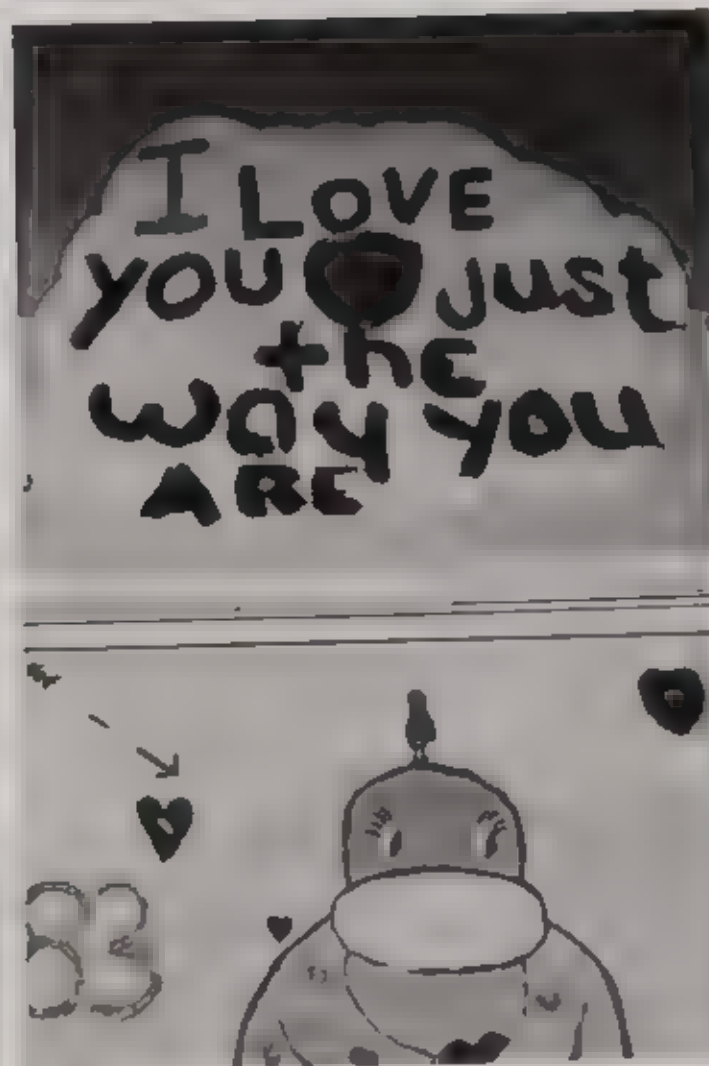 I LOVE
you just
the
way you
ARE